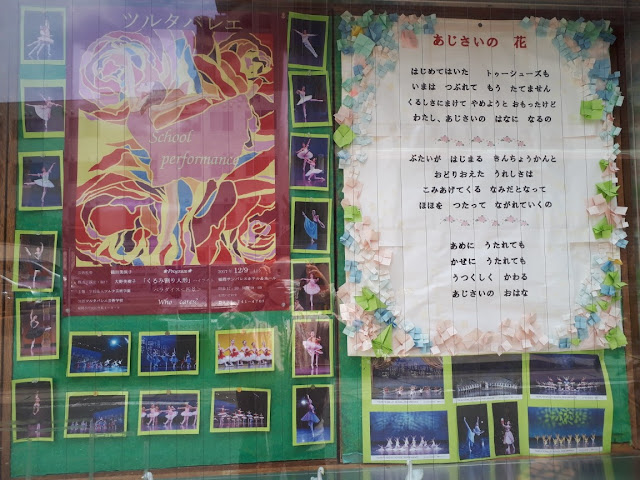 ツルタバレエ
School
performance
Program
12/9
「くるみ割り人形」
Who cares?
あじさいの 花
はじめてはいた トゥーシューズも
いまは つぶれて もう たてません
くるしさにまけて やめようと おもったけど
わたし、あじさいの はなに なるの
ぶたいが はじまる きんちょうかんと
おどりおえた うれしさは
こみあげてくる なみだとなって
ほほを つたって ながれていくの
あめに うたれても
かぜに うたれても
うつくしく かわる
あじさいの おはな